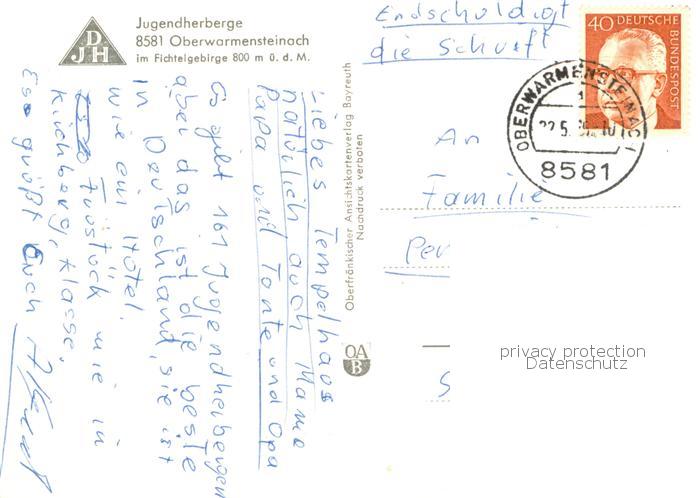 DJH
Jugendherberge
8581 Oberwarmensteinach
im Fichtelgebirge 800 m ü. d. M.
Endschuldigt
die Schrift
40 DEUTSCHE BUNDESPOST
OBERWARMENSTEINACH
1
8581
An
Familie
Per
S
Oberfränkischer Ansichtskartenverlag Bayreuth
Nachdruck verboten
OA
B
Liebes Tempelhaos
natürlich auch Mama
Papa und Tante und Opa
Es giebt 161 Jugendherbergen
aber das ist die beste
in Deutschland, sie ist
wie ein Hotel.
Früstück wie in
Kirchberg, klasse.
Ese grüßt euch
privacy protection
Datenschutz